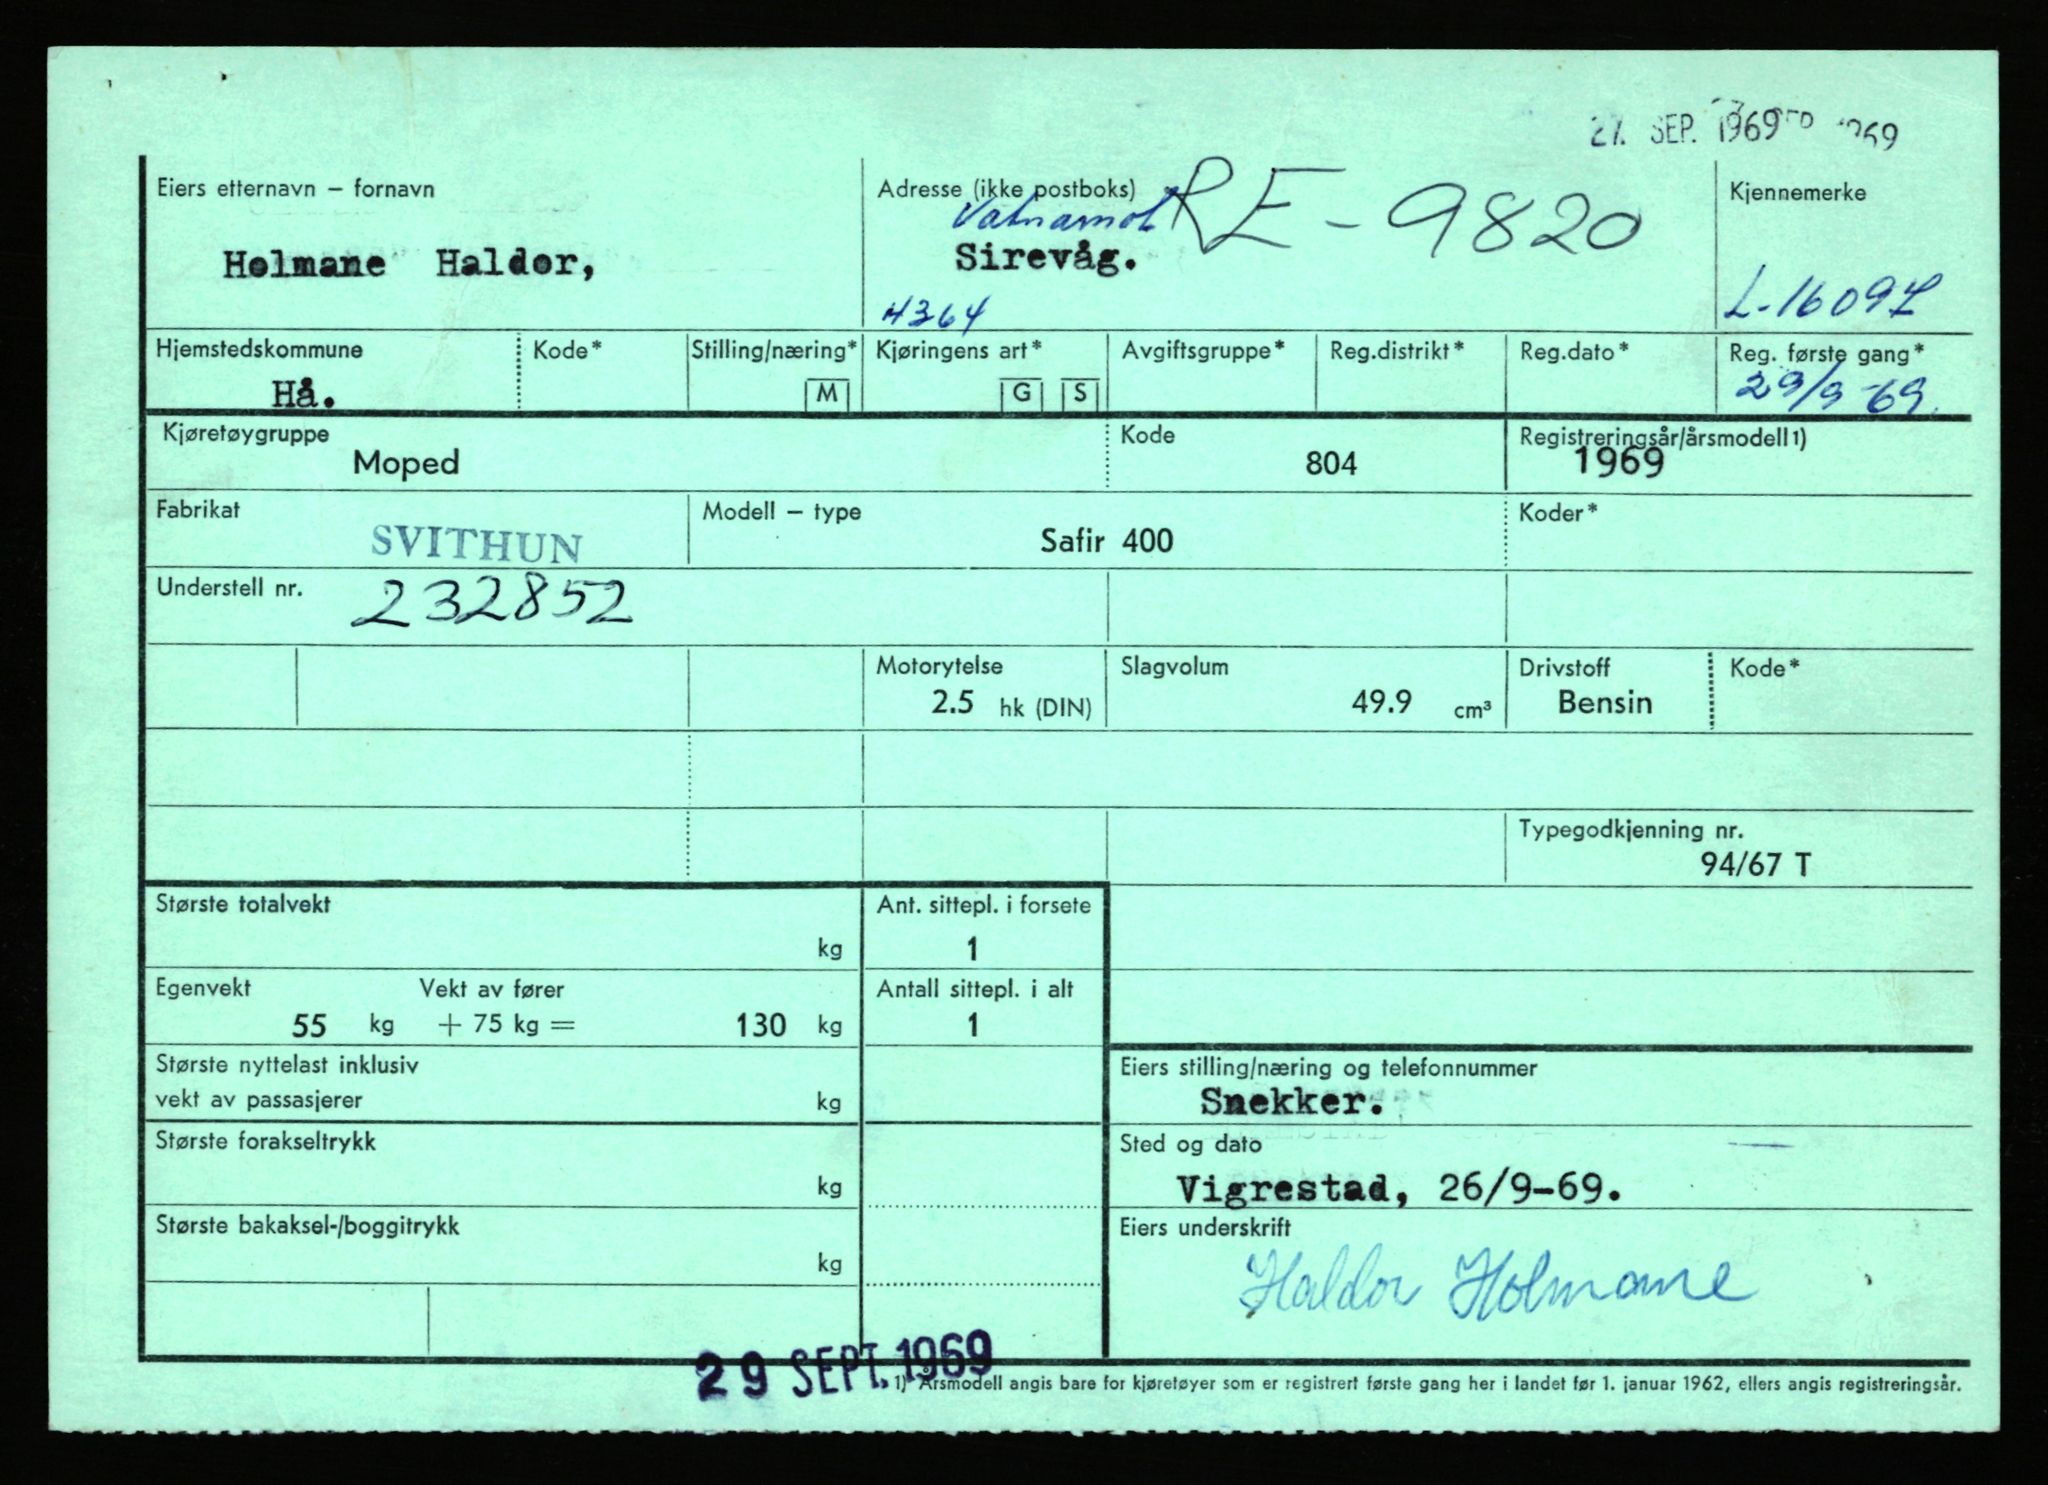 27. SEP. 1969
Eiers etternavn – fornavn
Adresse (ikke postboks)
RE-9820
Kjennemerke
Holmane Haldor,
Sirevåg.
4364
Hjemstedskommune
Kode*
Stilling/næring*
Kjøringens art*
Avgiftsgruppe*
Reg.distrikt*
Reg.dato*
Reg. første gang*
Hå.
M
G S
29/9-69.
Kjøretøygruppe
Moped
Kode
804
Registreringsår/årsmodell1)
1969
Fabrikat
SVITHUN
Modell – type
Safir 400
Koder*
Understell nr.
232852
Motorytelse
2.5 hk (DIN)
Slagvolum
49.9 cm³
Drivstoff
Bensin
Kode*
Typegodkjenning nr.
94/67 T
Største totalvekt
kg
Ant. sittepl. i forsete
1
Egenvekt Vekt av fører
55 kg + 75 kg = 130 kg
Antall sittepl. i alt
1
Største nyttelast inklusiv
vekt av passasjerer kg
Eiers stilling/næring og telefonnummer
Snekker.
Største forakseltrykk
kg
Sted og dato
Vigrestad, 26/9-69.
Største bakaksel-/boggitrykk
kg
Eiers underskrift
Haldor Holmane
29 SEPT. 1969
1) Årsmodell angis bare for kjøretøyer som er registrert første gang her i landet før 1. januar 1962, ellers angis registreringsår.